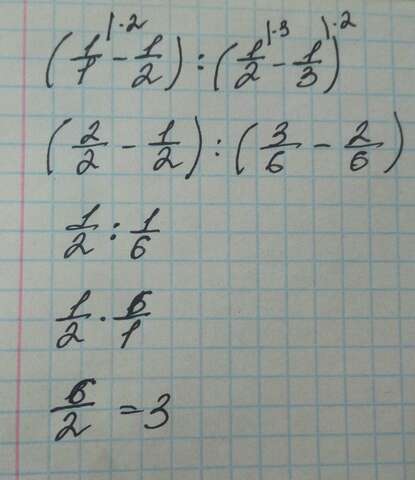 (1/1|·2 - 1/2) : (1/2|·3 - 1/3)|·2
(2/2 - 1/2) : (3/6 - 2/6)
1/2 : 1/6
1/2 · 6/1
6/2 = 3